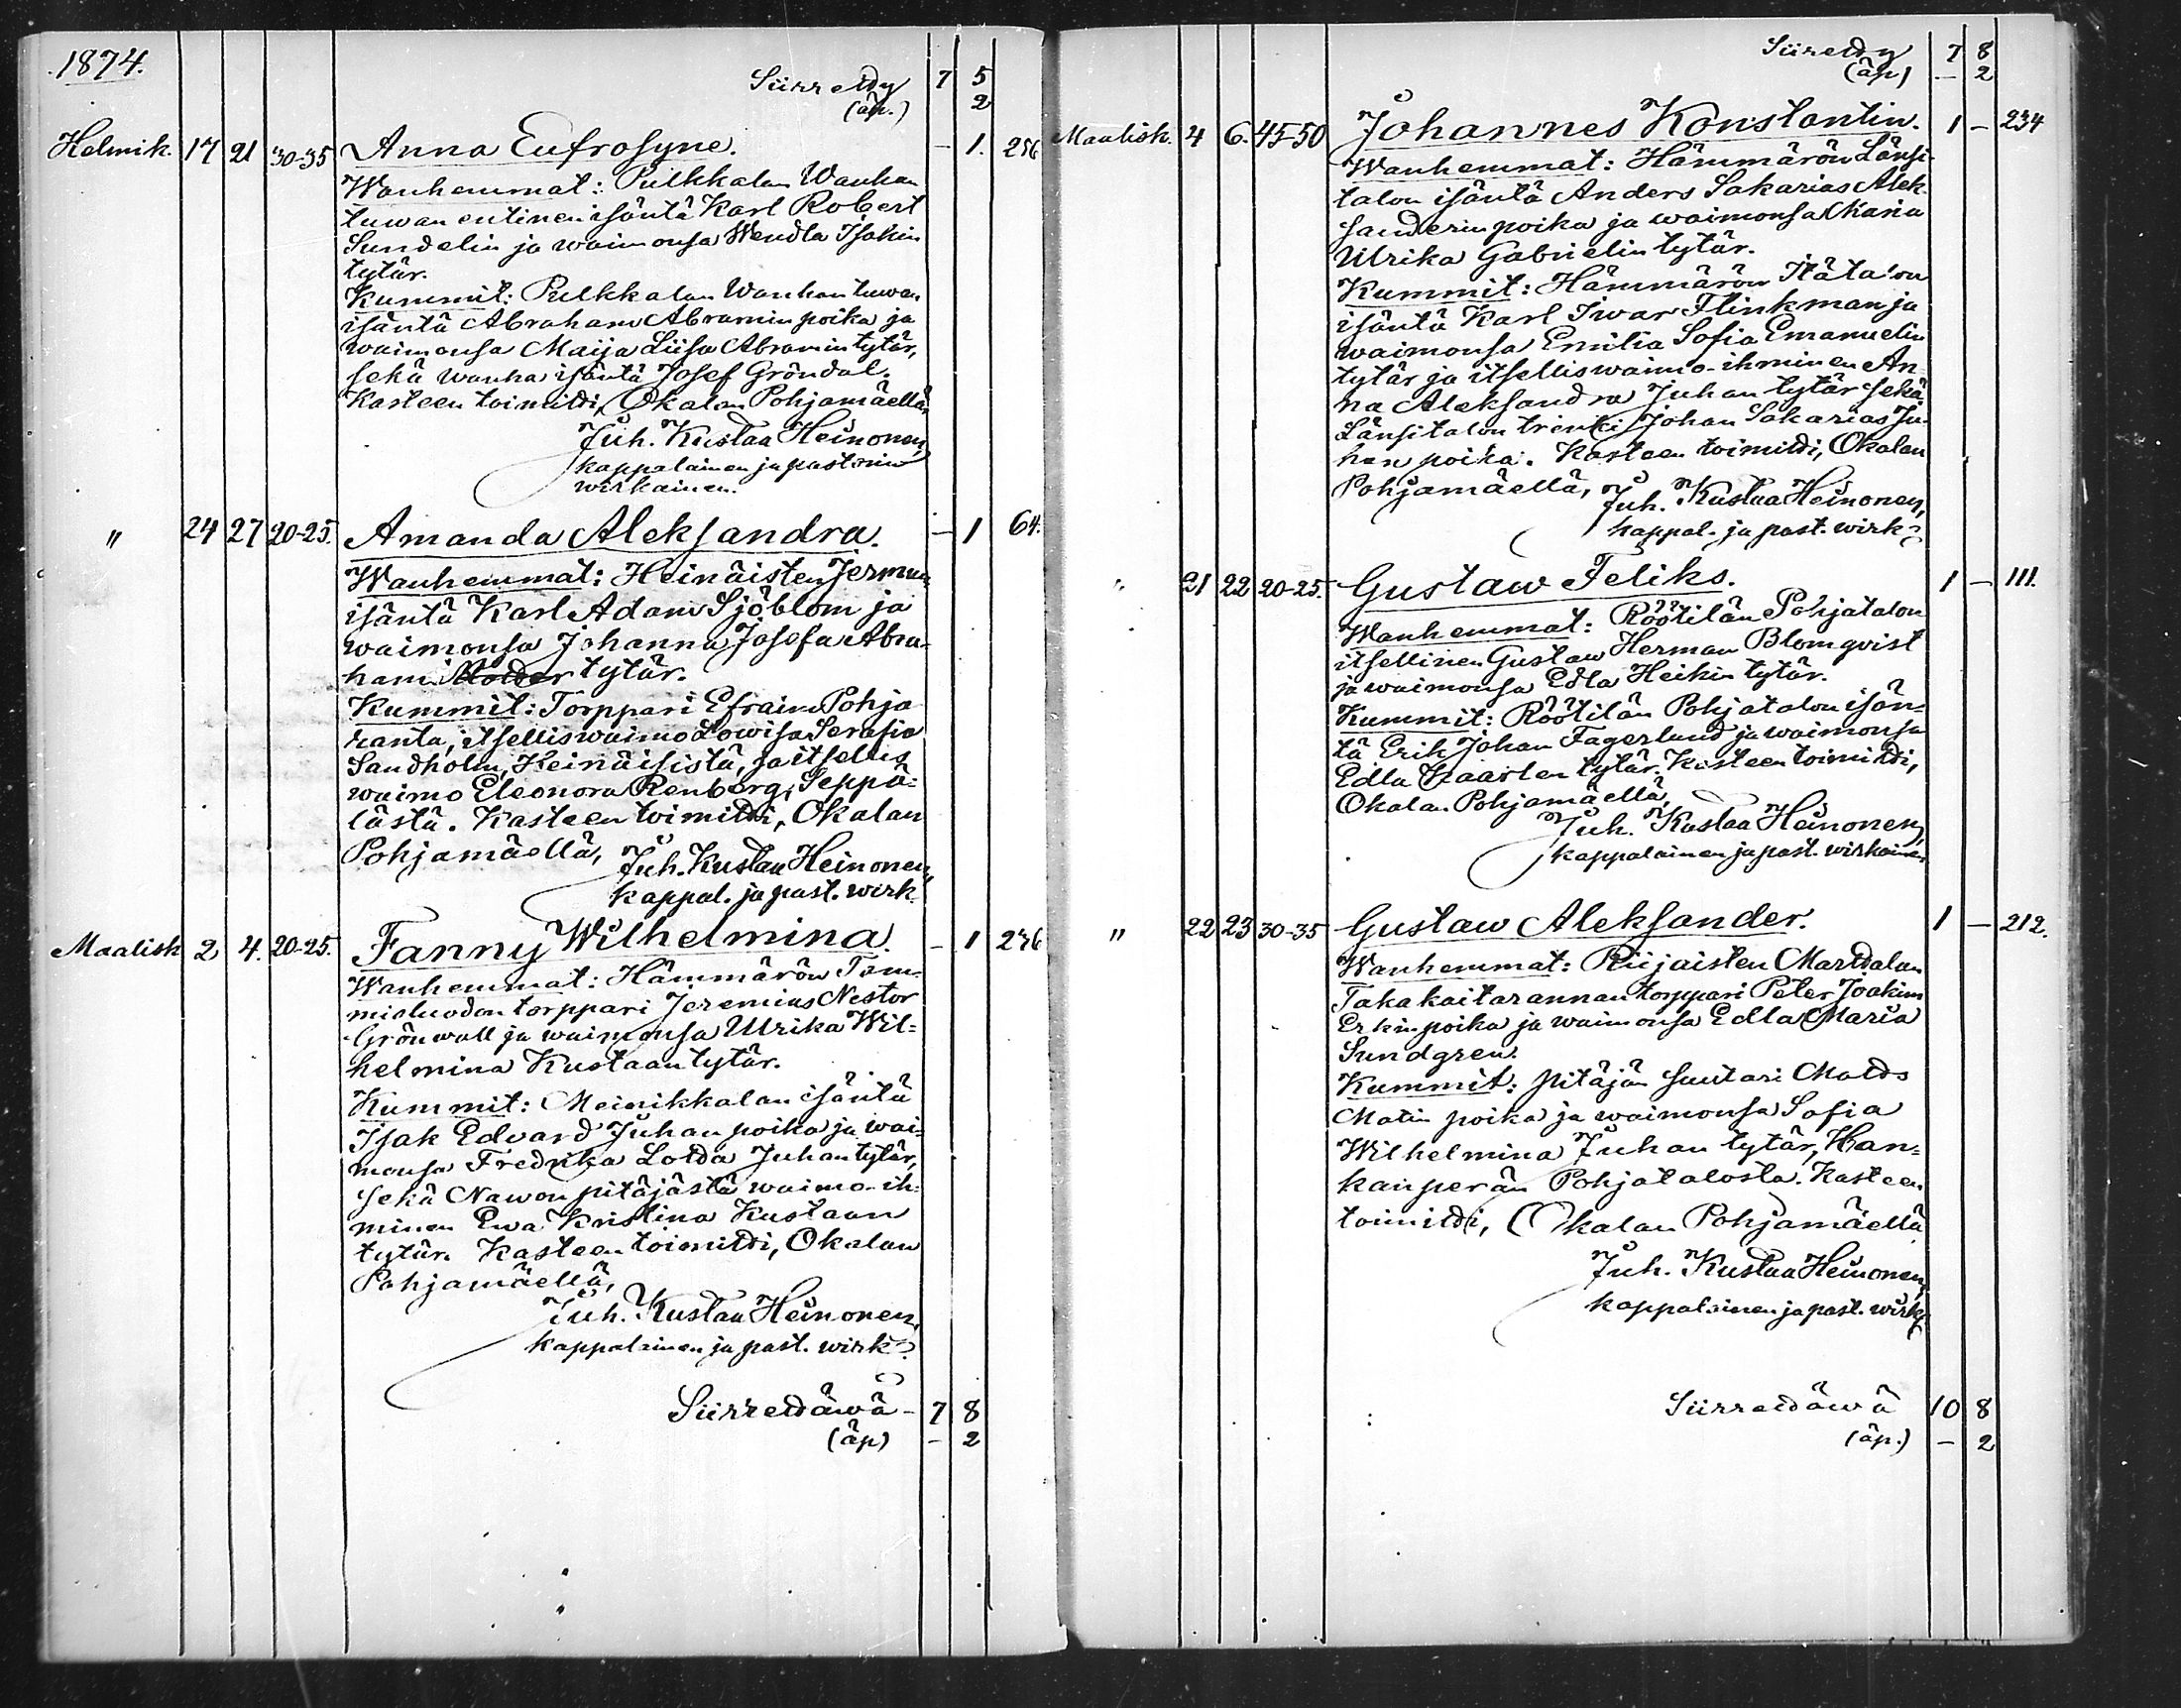 1874.
Siirretty 7 5
(äp.) 2
Helmik. 17 21 30-35 Anna Eufrosyne. — 1. 256
Wanhemmat: Pulkkalan Wanhan
tuwan entinen isäntä Karl Robert
Sundelin ja waimonsa Wendla Isakin
tytär.
Kummit: Pulkkalan Wanhantuwan
isäntä Abraham Abramin poika ja
waimonsa Maija Liisa Abramin tytär,
sekä wanha isäntä Josef Gröndal.
Kasteen toimitti, Okalan Pohjamäellä,
Juh. Kustaa Heinonen,
kappalainen ja pastorin
wirkainen.
" 24 27 20-25. Amanda Aleksandra. — 1 64.
Wanhemmat: Heinäisten Jermun
isäntä Karl Adam Sjöblom ja
waimonsa Johanna Josefa Abra-
hami tytär.
Kummit: Torppari Efraim Pohja
ranta, itselliswaimo Lowisa Serafia
Sandholm, Heinäisistä, ja itsellis
waimo Eleonora Renberg, Seppä-
lästä. Kasteen toimitti, Okalan
Pohjamäellä,
Juh. Kustaa Heinonen,
kappal. ja past. wirk.
Maalisk 2 4. 20-25. Fanny Wilhelmina. — 1 246
Wanhemmat: Hämmärön Tam-
misluodon torppari Jeremias Nestor
Grönwall ja waimonsa Ulrika Wil-
helmina Kustaan tytär.
Kummit: Meinikkalan isäntä
Isak Edvard Juhan poika ja wai-
monsa Fredrika Lotta Juhan tytär,
sekä Nawon pitäjästä waimo-ih-
minen Ewa Kristina Kustaan
tytär. Kasteen toimitti, Okalan
Pohjamäellä,
Juh. Kustaa Heinonen,
kappalainen ja past. wirk.
Siirrettäwä — 7 8
(äp) — 2
Siirretty 7 8
(äp) — 2
Maalisk. 4 6. 45-50 Johannes Konstantin. 1 — 234
Wanhemmat: Hämmärön Länsi-
talon isäntä Anders Sakarias Alek
sanderin poika ja waimonsa Maria
Ulrika Gabrielin tytär.
Kummit: Hämmärön Itätalon
isäntä Karl Iwar Flinkman ja
waimonsa Emilia Sofia Emanuelin
tytär ja itselliswaimo-ihminen An-
na Aleksandra Juhan tytär sekä
Länsitalon trenki Johan Sakarias Ju-
han poika. Kasteen toimitti, Okalan
Pohjamäellä,
Juh. Kustaa Heinonen,
kappal. ja past. wirk.
" 21 22 20-25. Gustaw Feliks. 1 — 111.
Wanhemmat: Röötilän Pohjatalon
itsellinen Gustaw Herman Blomqvist
ja waimonsa Edla Heikin tytär.
Kummit: Röötilän Pohjatalon isän-
tä Erik Johan Fagerlund ja waimonsa
Edla Kaarlen tytär. Kasteen toimitti,
Okalan Pohjamäellä,
Juh. Kustaa Heinonen,
kappalainen ja past. wirkainen
" 22 23 30-35 Gustaw Aleksander. 1 — 212.
Wanhemmat: Riijaisten Marttalan
Takakaitarannan torppari Peter Joakim
Erkin poika ja waimonsa Edla Maria
Sundgren.
Kummit: pitäjän suutari Matts
Matin poika ja waimonsa Sofia
Wilhelmina Juhan tytär, Han-
kanperän Pohjatalosta. Kasteen
toimitti, Okalan Pohjamäellä
Juh. Kustaa Heinonen,
kappalainen ja past. wirk.
Siirrettäwä 10 8
(äp.) — 2